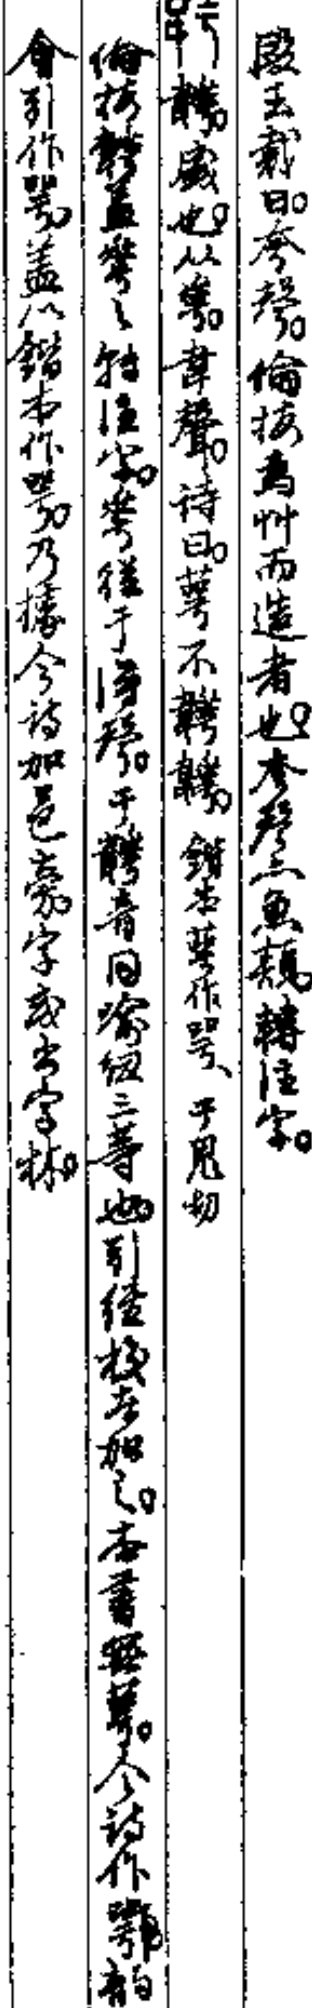 段玉裁曰。夸聲。倫按為艸而造者也。夸聲亦魚類轉注字。
韡。盛也。从𠌶。韋聲。詩曰。萼不韡韡。鍇本萼作咢、于鬼切
倫按韡蓋𠌶之轉注字。𠌶從于得聲。于韡音同喻紐三等也。引經校者加之。本書無萼。今詩作鄂韵
會引作咢。蓋以鍇本作咢。乃據今詩加邑旁。字或出字林。